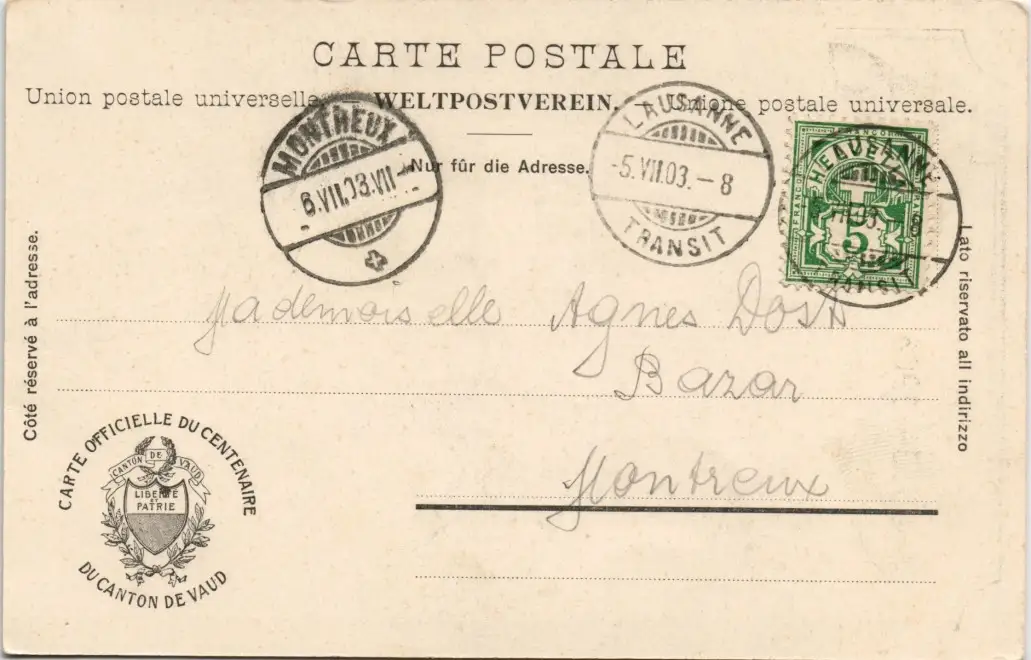 CARTE POSTALE
Union postale universelle. — WELTPOSTVEREIN. — Unione postale universale.
Nur für die Adresse.
MONTREUX
6.VII.03.VII-
LAUSANNE
-5.VII.03.-8
TRANSIT
HELVETIA
FRANCO
5
LAUSANNE
VII.03.-8
TRANSIT
Côté réservé à l'adresse.
Lato riservato all indirizzo
Mademoiselle Agnes Dost
Bazar
Montreux
CARTE OFFICIELLE DU CENTENAIRE
CANTON DE VAUD
LIBERTÉ
ET
PATRIE
DU CANTON DE VAUD